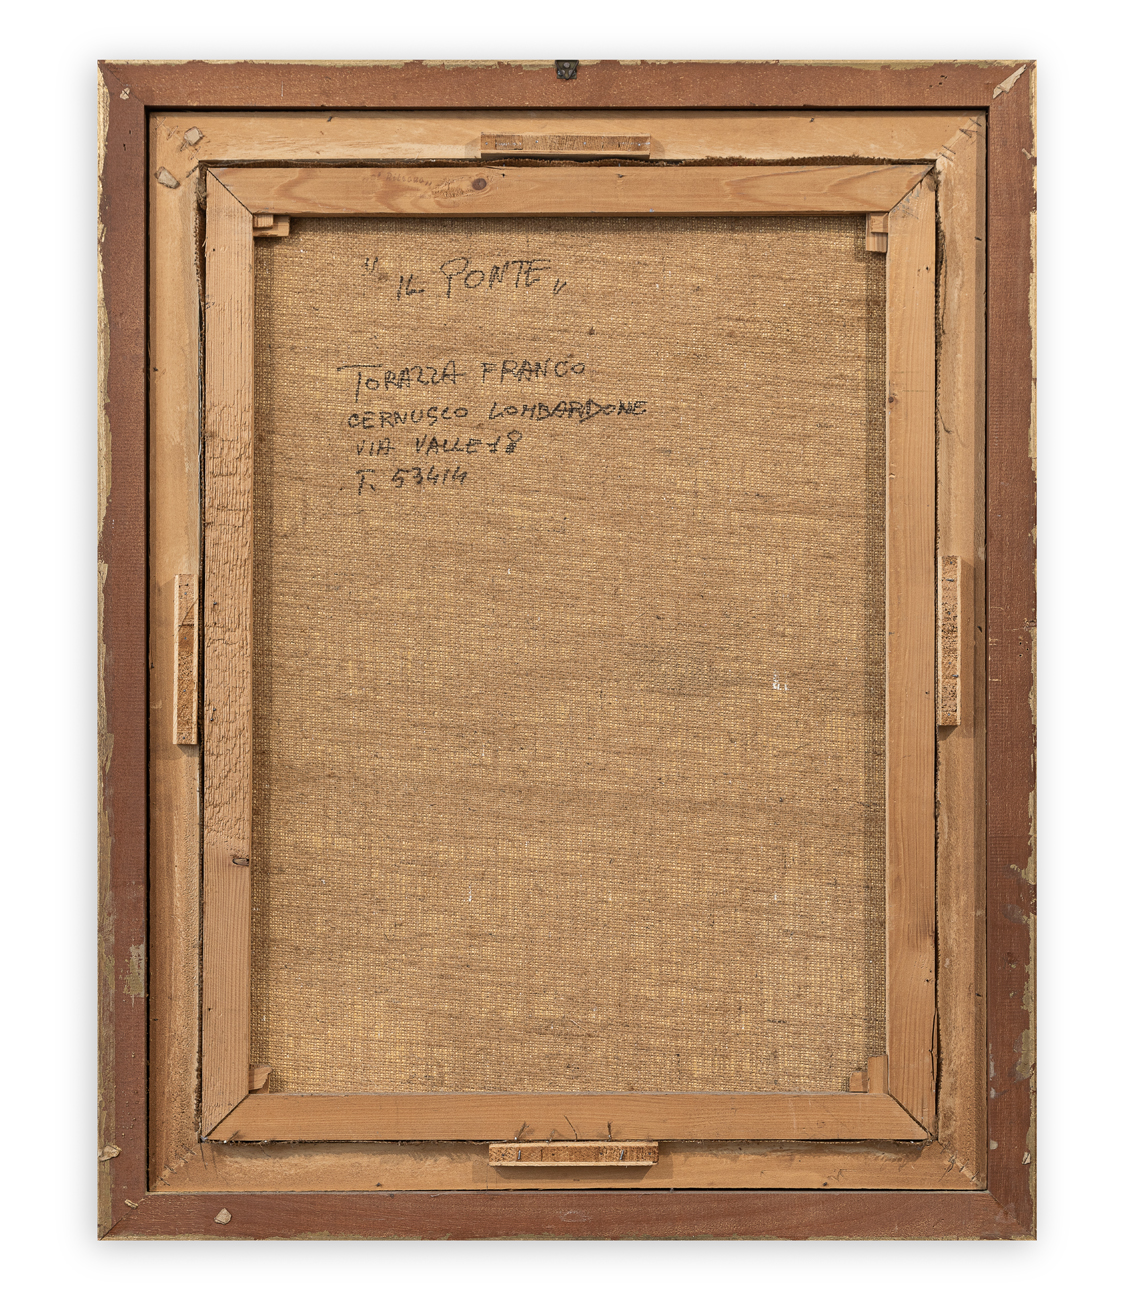 " IL PONTE „
TORAZZA FRANCO
CERNUSCO LOMBARDONE
VIA VALLE 18
T. 53414